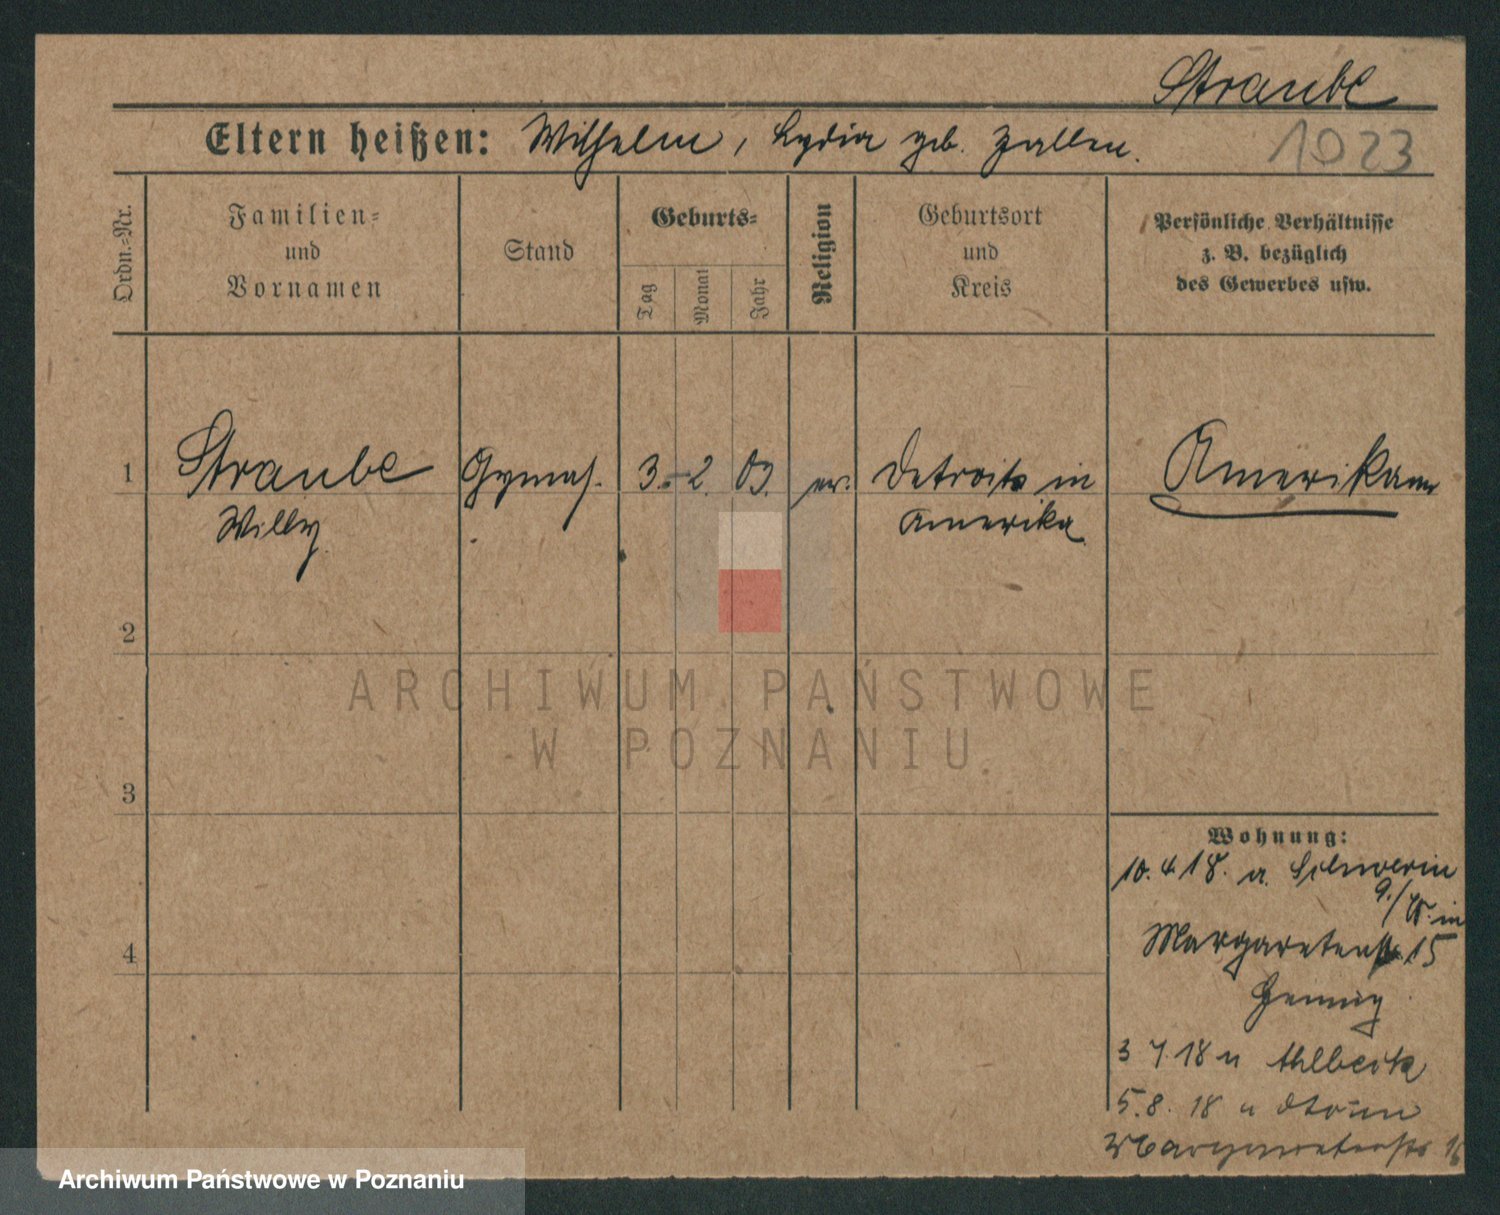 Straube
Eltern heißen: Wilhelm, Lydia geb. Zallen.
1023
Ordn.=Nr.
Familien=
und
Vornamen
Stand
Geburts=
Tag
Monat
Jahr
Religion
Geburtsort
und
Kreis
Persönliche Verhältnisse
z. B. bezüglich
des Gewerbes usw.
1
Straube
Willy
Gymas.
3.-2. 03.
ev.
Detroit in
Amerika
Amerikaner
2
ARCHIWUM PAŃSTWOWE
W POZNANIU
3
Wohnung:
10.4.18. a. Schwerin
in
4
Margaretenstr. 15
Hennig
3 7.18 n Ahlbeck
5.8. 18
Margaretenstr 15
Archiwum Państwowe w Poznaniu